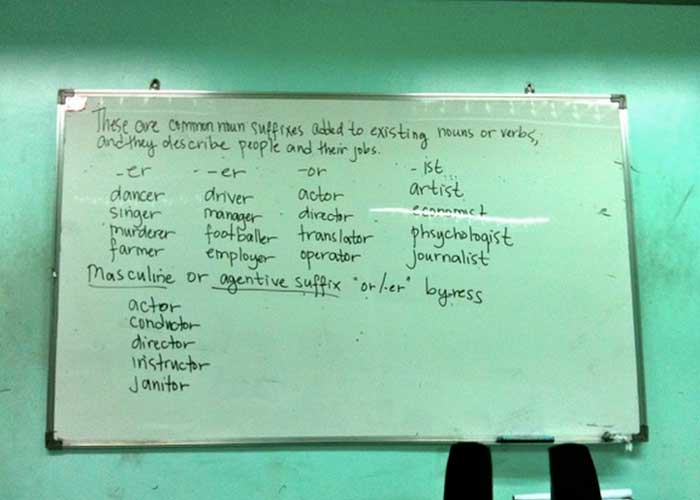 These are common noun suffixes added to existing nouns or verbs,
and they describe people and their jobs.
-er -er -or -ist
dancer driver actor artist
singer manager director economist
murderer footballer translator phsychologist
farmer employer operator journalist
Masculine or agentive suffix "or/-er" by-ress
actor
conductor
director
instructor
janitor